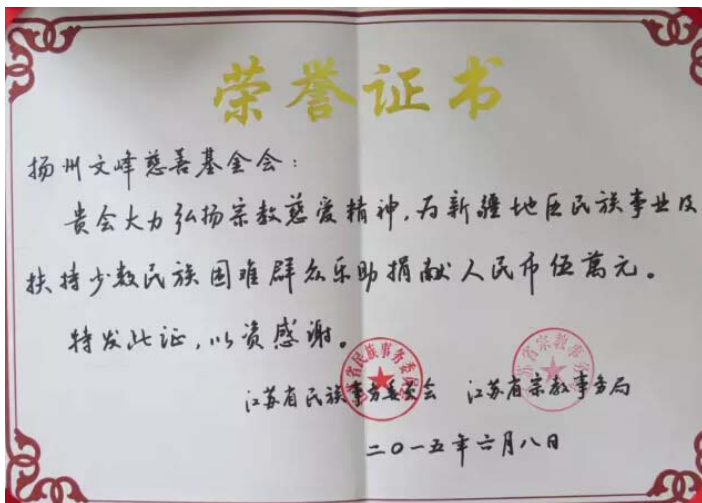 荣誉证书
扬州文峰慈善基金会：
贵会大力弘扬宗教慈爱精神，为新疆地区民族事业及
扶持少数民族困难群众乐助捐献人民币伍萬元。
特发此证，以资感谢。
江苏省民族事务委员会 江苏省宗教事务局
二〇一五年六月八日